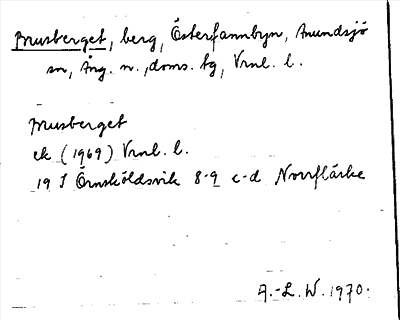 Brusberget, berg, Österfannbyn, Anundsjö
sn, Ång. n., doms. tg, Vrnl. l.
Brusberget
ek (1969) Vrnl. l.
19 I Örnsköldsvik 8-9 c-d Norrflärke
A.-L. W. 1970.